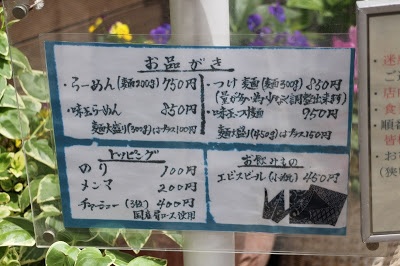 お品がき
・らーめん(麺200g)750円
・味玉らーめん 850円
麺大盛り(300g)はプラス100円
・つけ麺(麺300g)850円
・味玉つけ麺 950円
麺大盛り(450g)はプラス150円
トッピング
のり 100円
メンマ 200円
チャーシュー(3枚)400円
国産肩ロース使用
お飲みもの
エビスビール(小瓶)450円
店
食
順番
皆様
お
(狭